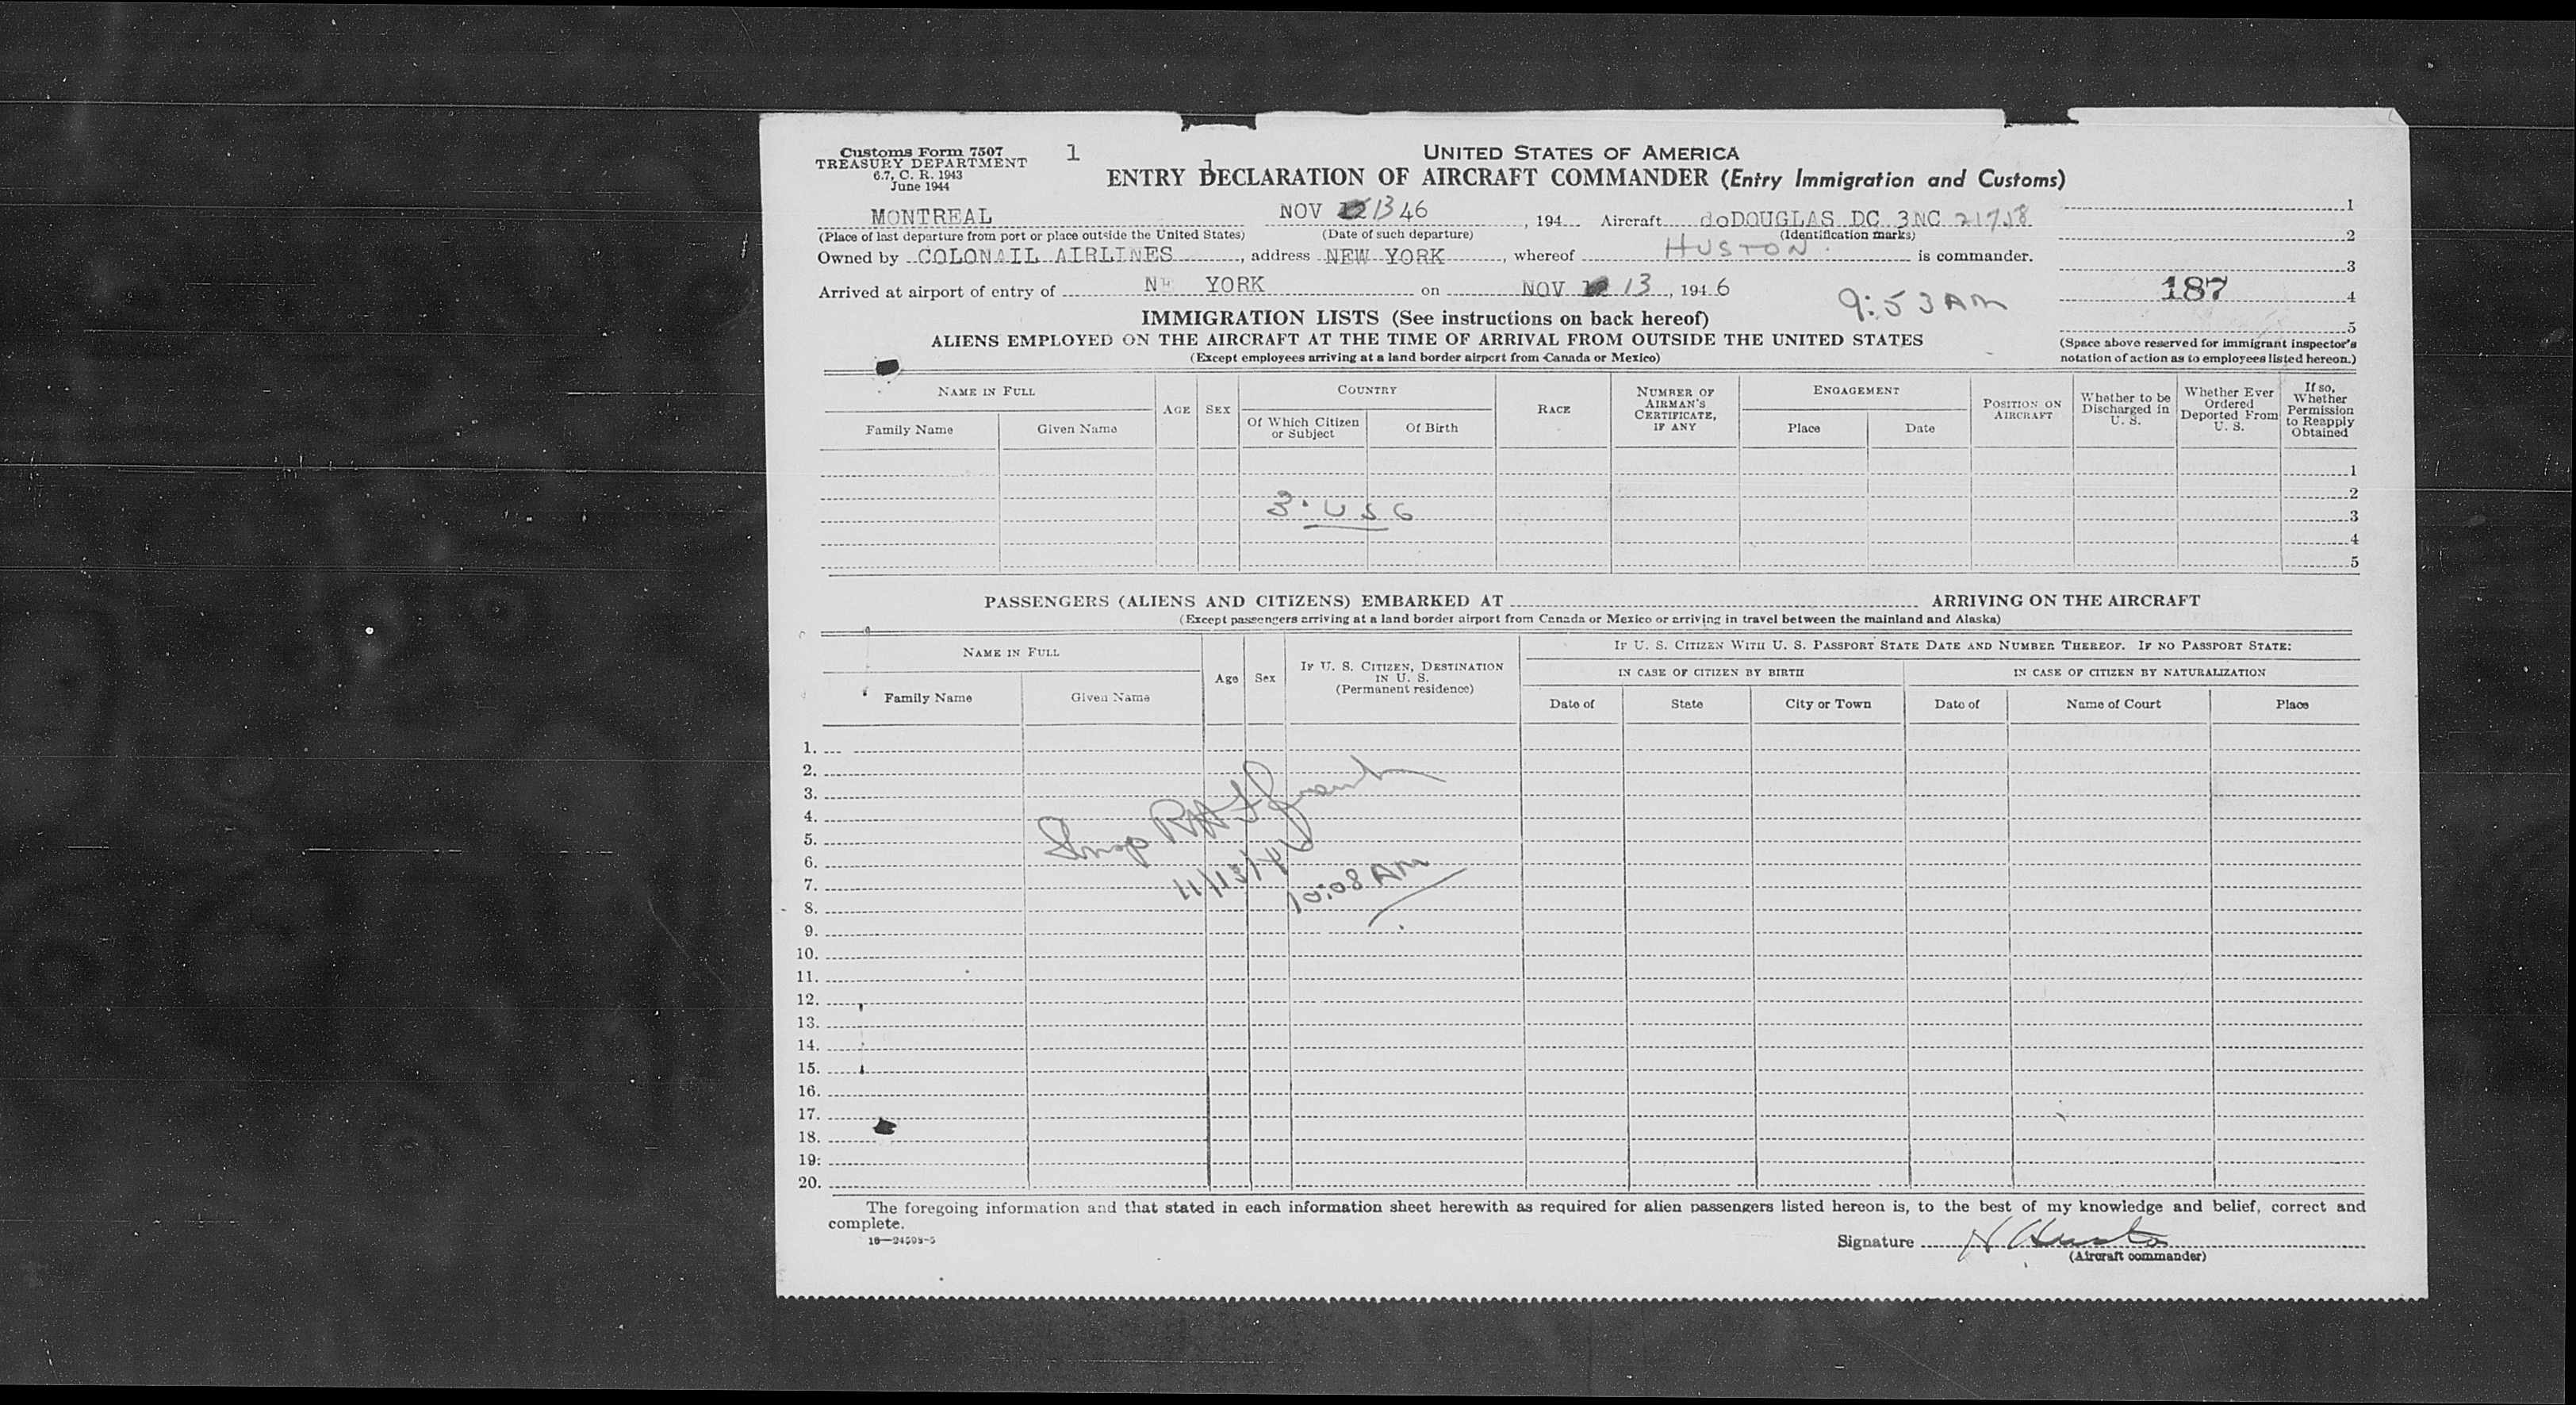 Customs Form 7507
TREASURY DEPARTMENT
6.7, C. R. 1943
June 1944
1
UNITED STATES OF AMERICA
ENTRY DECLARATION OF AIRCRAFT COMMANDER (Entry Immigration and Customs)
MONTREAL NOV 13 46, 194 Aircraft doDOUGLAS DC 3NC 21758
(Place of last departure from port or place outside the United States) (Date of such departure) (Identification marks)
Owned by COLONAIL AIRLINES, address NEW YORK, whereof HUSTON is commander.
Arrived at airport of entry of NE YORK on NOV 13, 194 6
9:53 AM
1
2
3
187 4
5
(Space above reserved for immigrant inspector's
notation of action as to employees listed hereon.)
IMMIGRATION LISTS (See instructions on back hereof)
ALIENS EMPLOYED ON THE AIRCRAFT AT THE TIME OF ARRIVAL FROM OUTSIDE THE UNITED STATES
(Except employees arriving at a land border airport from Canada or Mexico)
NAME IN FULL
Family Name Given Name
AGE SEX
COUNTRY
Of Which Citizen or Subject Of Birth
RACE
NUMBER OF AIRMAN'S CERTIFICATE, IF ANY
ENGAGEMENT
Place Date
POSITION ON AIRCRAFT
Whether to be Discharged in U. S.
Whether Ever Ordered Deported From U. S.
If so, Whether Permission to Reapply Obtained
1
2
3 USC 3
4
5
PASSENGERS (ALIENS AND CITIZENS) EMBARKED AT ARRIVING ON THE AIRCRAFT
(Except passengers arriving at a land border airport from Canada or Mexico or arriving in travel between the mainland and Alaska)
NAME IN FULL
Family Name Given Name
Age Sex
IF U. S. CITIZEN, DESTINATION IN U. S.
(Permanent residence)
IF U. S. CITIZEN WITH U. S. PASSPORT STATE DATE AND NUMBER THEREOF. IF NO PASSPORT STATE:
IN CASE OF CITIZEN BY BIRTH IN CASE OF CITIZEN BY NATURALIZATION
Date of State City or Town Date of Name of Court Place
1.
2.
3.
4.
5.
6.
7.
8.
9.
10.
11.
12.
13.
14.
15.
16.
17.
18.
19.
20.
11/13/46
10:08 AM
The foregoing information and that stated in each information sheet herewith as required for alien passengers listed hereon is, to the best of my knowledge and belief, correct and
complete.
Signature H Huston
(Aircraft commander)